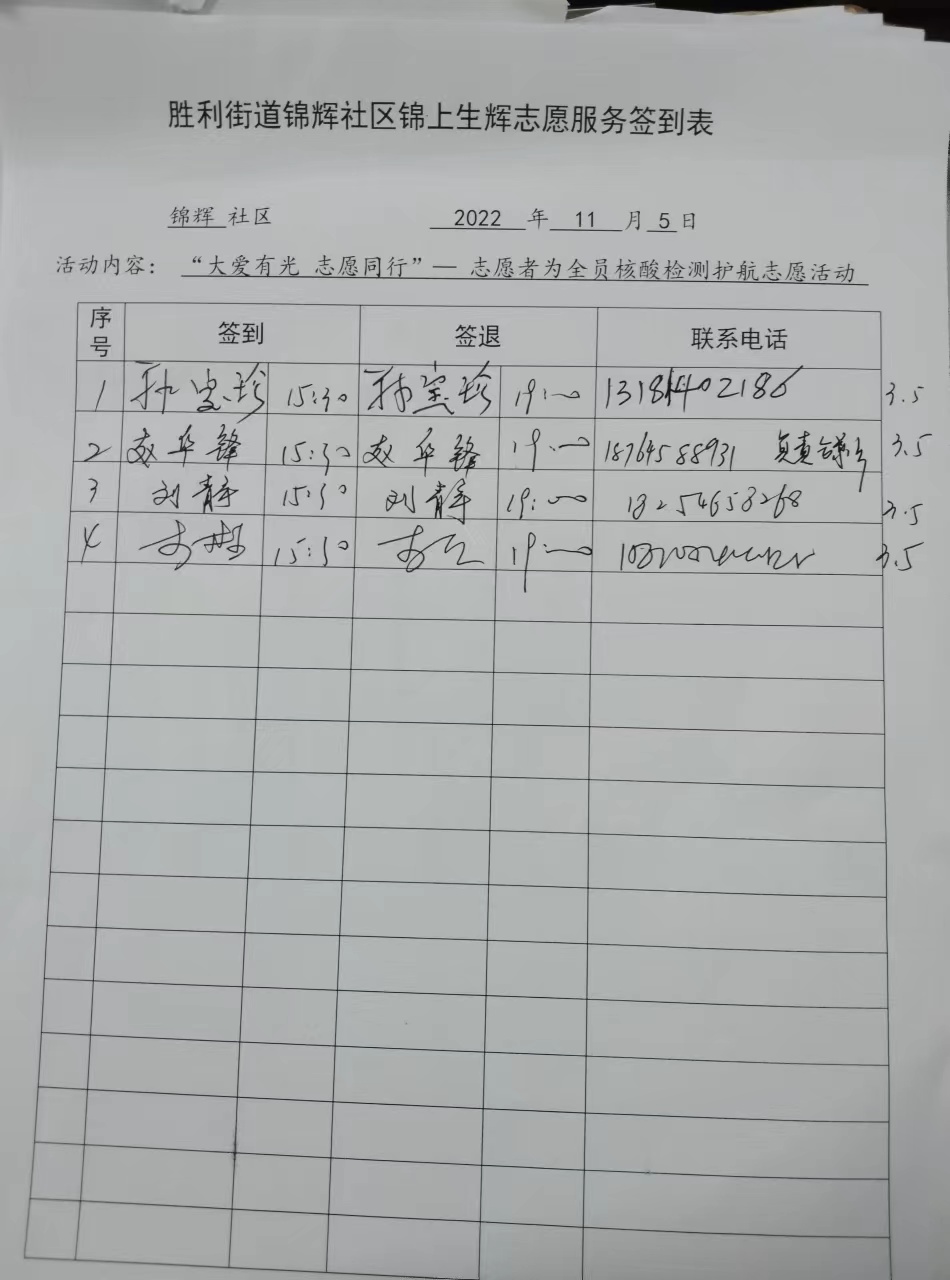 胜利街道锦辉社区锦上生辉志愿服务签到表
锦辉 社区 2022 年 11 月 5 日
活动内容： “大爱有光 志愿同行”— 志愿者为全员核酸检测护航志愿活动
序号 签到 签退 联系电话
1 孙宝珍 15:30 孙宝珍 19:00 13181402186 3.5
2 华锋 15:30 华锋 19:00 18764588931 负责 3.5
3 刘静 15:30 刘静 19:00 18254658268 3.5
4 15:30 19:00 3.5